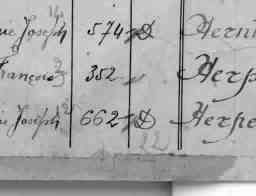 ie Joseph 574 D Herni
François 352 Herp
ie Joseph 662 D Herpe
22